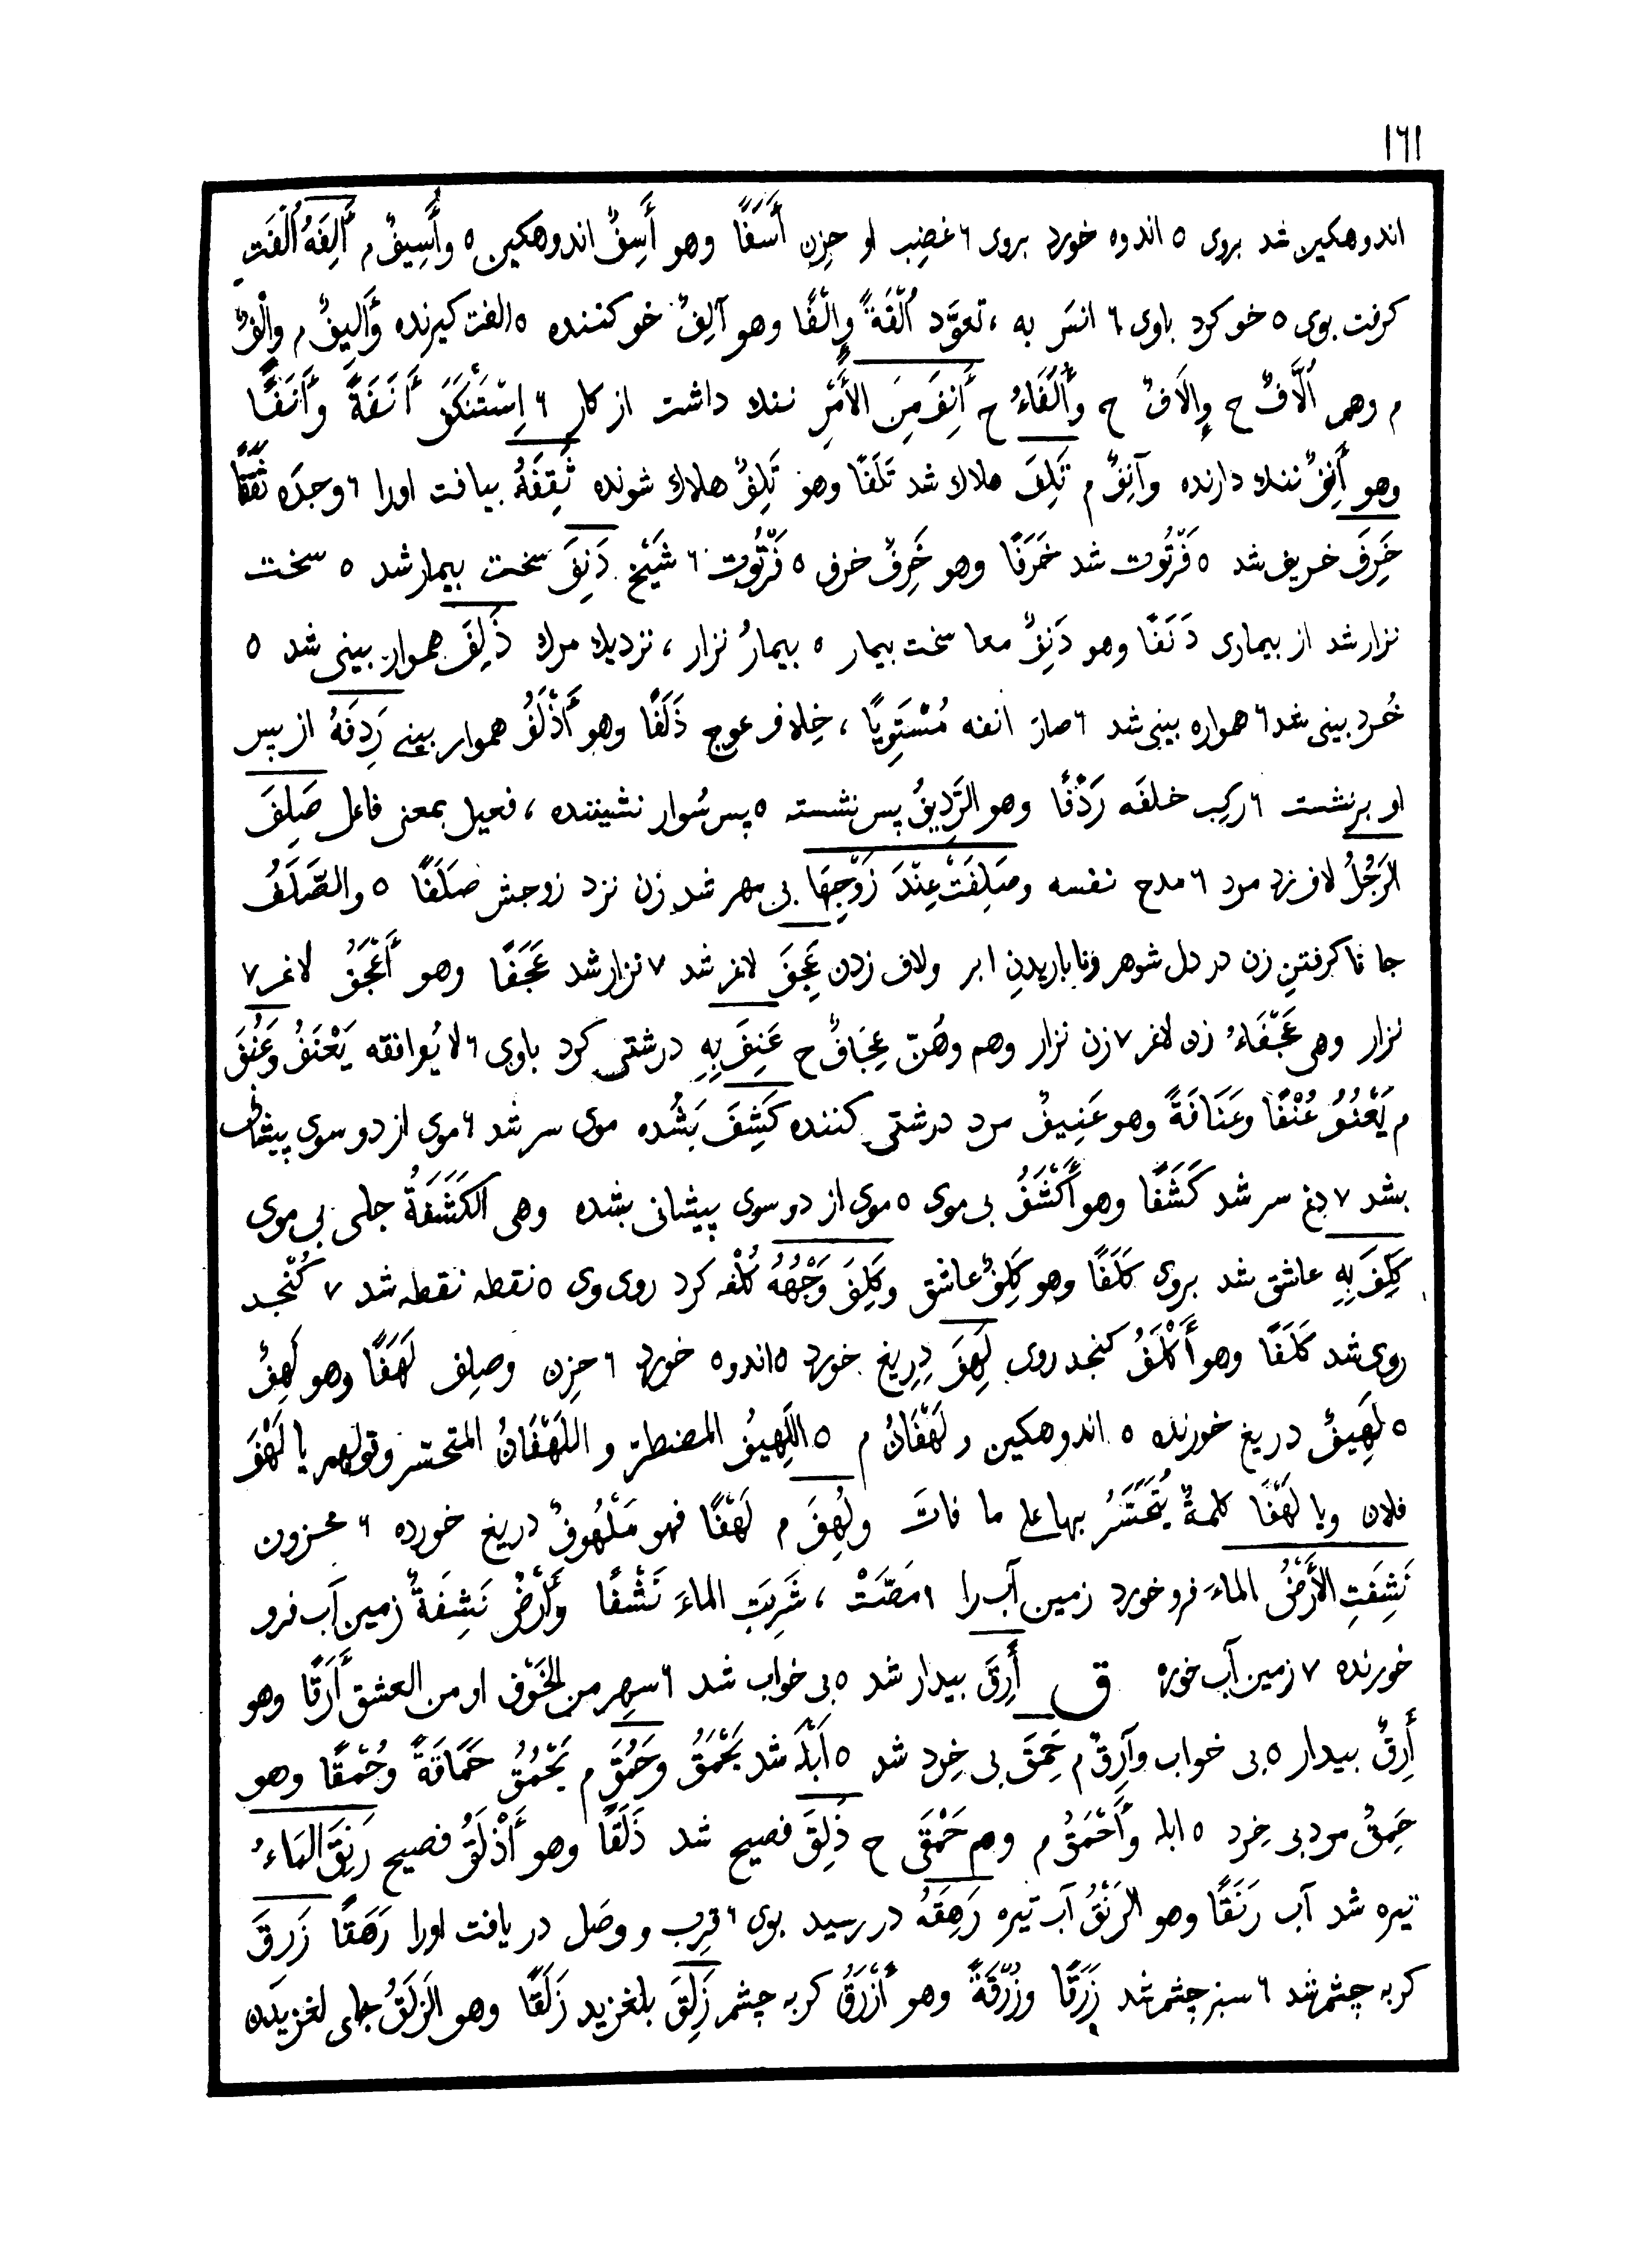 ١٦١
اندوهكين شد بروى ٥ اندوه خورد بروى ٦ غضِب او حزِن أَسَفًا وهو أَسِفٌ اندوهكين ٥ وأَسِيفٌ م أَلِفَهُ اُلْفَت
كرفت بوى ٥ خو كرد باوى ٦ انسَ به ، تعوَّد اُلْفَةً وإِلْفًا وهو آلِفٌ خو كننده ٥ الفت كيرنده وَأَلِيفٌ م وإِلْفٌ
م وهم اُلَّافٌ ح وإِلَافٌ ح وأُلَفَاءُ ح أَنِفَ مِنَ الأَمْرِ ننك داشت از كار ٦ اِسْتَنْكَفَ أَنَفَةً وأَنَفًا
وهو أَنِفٌ ننك دارنده وآنِفٌ م تَلِفَ هلاك شد تَلَفًا وهو تَلِفٌ هلاك شونده ثَقِفَهُ بيافت اورا ٦ وجدَه ثَقَفًا
خَرِفَ خريف شد ٥ فَرْتُوت شد خَرَفًا وهو خَرِفٌ خرف ٥ فَرْتُوت ٦ شَيْخ دَنِفَ سخت بيمار شد ٥ سخت
نزار شد از بيمارى دَنَفًا وهو دَنِفٌ معا سخت بيمار ٥ بيمارُ نزار ، نزديك مرك ذَلِفَ هموار بينى شد ٥
خُرد بينى شد ٦ هواره بينى شد ٦ صارَ انفه مُسْتَوِيًا ، خِلاف عوج ذَلَفًا وهو أَذْلَفُ هموار بينى رَدِفَهُ از پس
او بر نشست ٦ ركِب خلفَه رَدْفًا وهو الرَّدِيفُ پس نشسته ٥ پس سُوار نشيننده ، فعيل بمعنى فاعل صَلِفَ
الرَجُلُ لاف زد مرد ٦ مدح نفسه وصَلِفَتْ عِنْدَ زَوْجِهَا بى مهر شد زن نزد زوجش صَلَفًا ٥ والصَّلَفُ
جا نا كرفتنِ زن در دل شوهر ونا باريدنِ ابر ولاف زدن عَجِفَ لاغر شد ٧ نزار شد عَجَفًا وهو أَعْجَفُ لاغر ٧
نزار وهى عَجْفَاءُ زن لاغر ٧ زن نزار وهم وهُنّ عِجَافٌ ح عَنِفَ بِهِ درشتى كرد باوى ٦ لا يُوافقه يَعْنَفُ وَعَنُفَ
م يَعْنُفُ عُنْفًا وعَنَافَةً وهو عَنِيفٌ مرد درشتى كننده كَشِفَ بَشُده موى سر شد ٦ موى از دو سوى پيشانى
بشد ٧ دغ سر شد كَشَفًا وهو أَكْشَفُ بى موى ٥ موى از دو سوى پيشانى بشده وهى الكَشَفَةُ جاى بى موى
كَلِفَ بِهِ عاشق شد بروى كَلَفًا وهو كَلِفٌ عاشق وَكَلِفَ وَجْهُهُ كُلْفه كرد روى وى ٥ نقطه نقطه شد ٧ كُنْجد
روى شد كَلَفًا وهو أَكْلَفُ كنجد روى لَهِفَ دِرِيغ خورد ٥ اندوه خورد ٦ حزِن وصلِف لَهَفًا وهو لَهِفٌ
٥ لَهِيفٌ دريغ خورنده ٥ اندوهكين ولَهْفَانُ م ٥ اللَهِيفُ المضطر واللَهْفَانُ المتحسّر وقولهم يا لَهْفَ
فلان ويا لَهْفَا كلمةٌ يُتَحَسَّرُ بها على ما فاتَ ولُهِفَ م لَهْفًا فهو مَلْهُوفٌ دريغ خورده ٦ محزون
نَشِفَتِ الأَرْضُ الماءَ فرو خورد زمين آب را ٦ مَصَّتْ ، شَرِبَتِ الماءَ نَشْفًا وَأَرْضٌ نَشِفَةٌ زمين آب فرو
خورنده ٧ زمين آب خوره ق أَرِقَ بيدار شد ٥ بى خواب شد ٦ سهِر من الخَوْف او من العشق أَرَقًا وهو
أَرِقٌ بيدار ٥ بى خواب وآرِقٌ م حَمِقَ بى خِرد شد ٥ اَبْلَه شد يَحْمَقُ وحَمُقَ م يَحْمُقُ حَمَاقَةً وحُمْقًا وهو
حَمِقٌ مرد بى خِرد ٥ ابله وأَحْمَقُ م وهم حَمْقَى ح ذَلِقَ فصيح شد ذَلَقًا وهو أَذْلَقُ فصيح رَنِقَ المَاءُ
تيره شد آب رَنَقًا وهو الرَنْقُ آب تيره رَهِقَهُ در رسيد بوى ٦ قرِب ووصَل در يافت اورا رَهَقًا زَرِقَ
كربه چشم شد ٦ سبز چشم شد زَرَقًا وزُرْقَةً وهو أَزْرَقُ كربه چشم زَلِقَ بلغزيد زَلَقًا وهو الزَلَقُ جاى لغزيدن